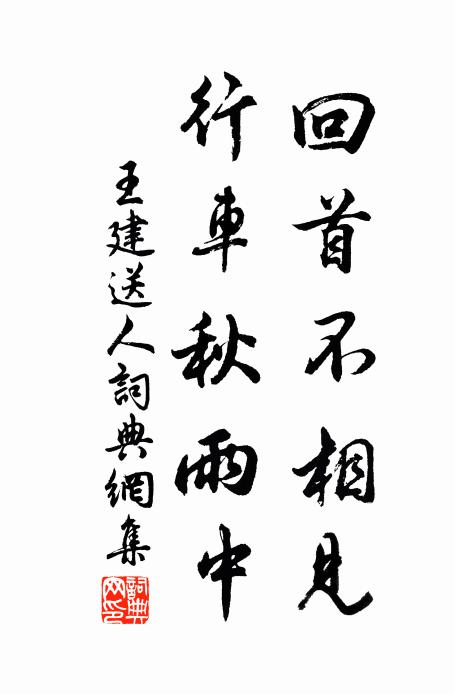 回首不相見
行車秋雨中
王建送人詞典網集
詞典
网印